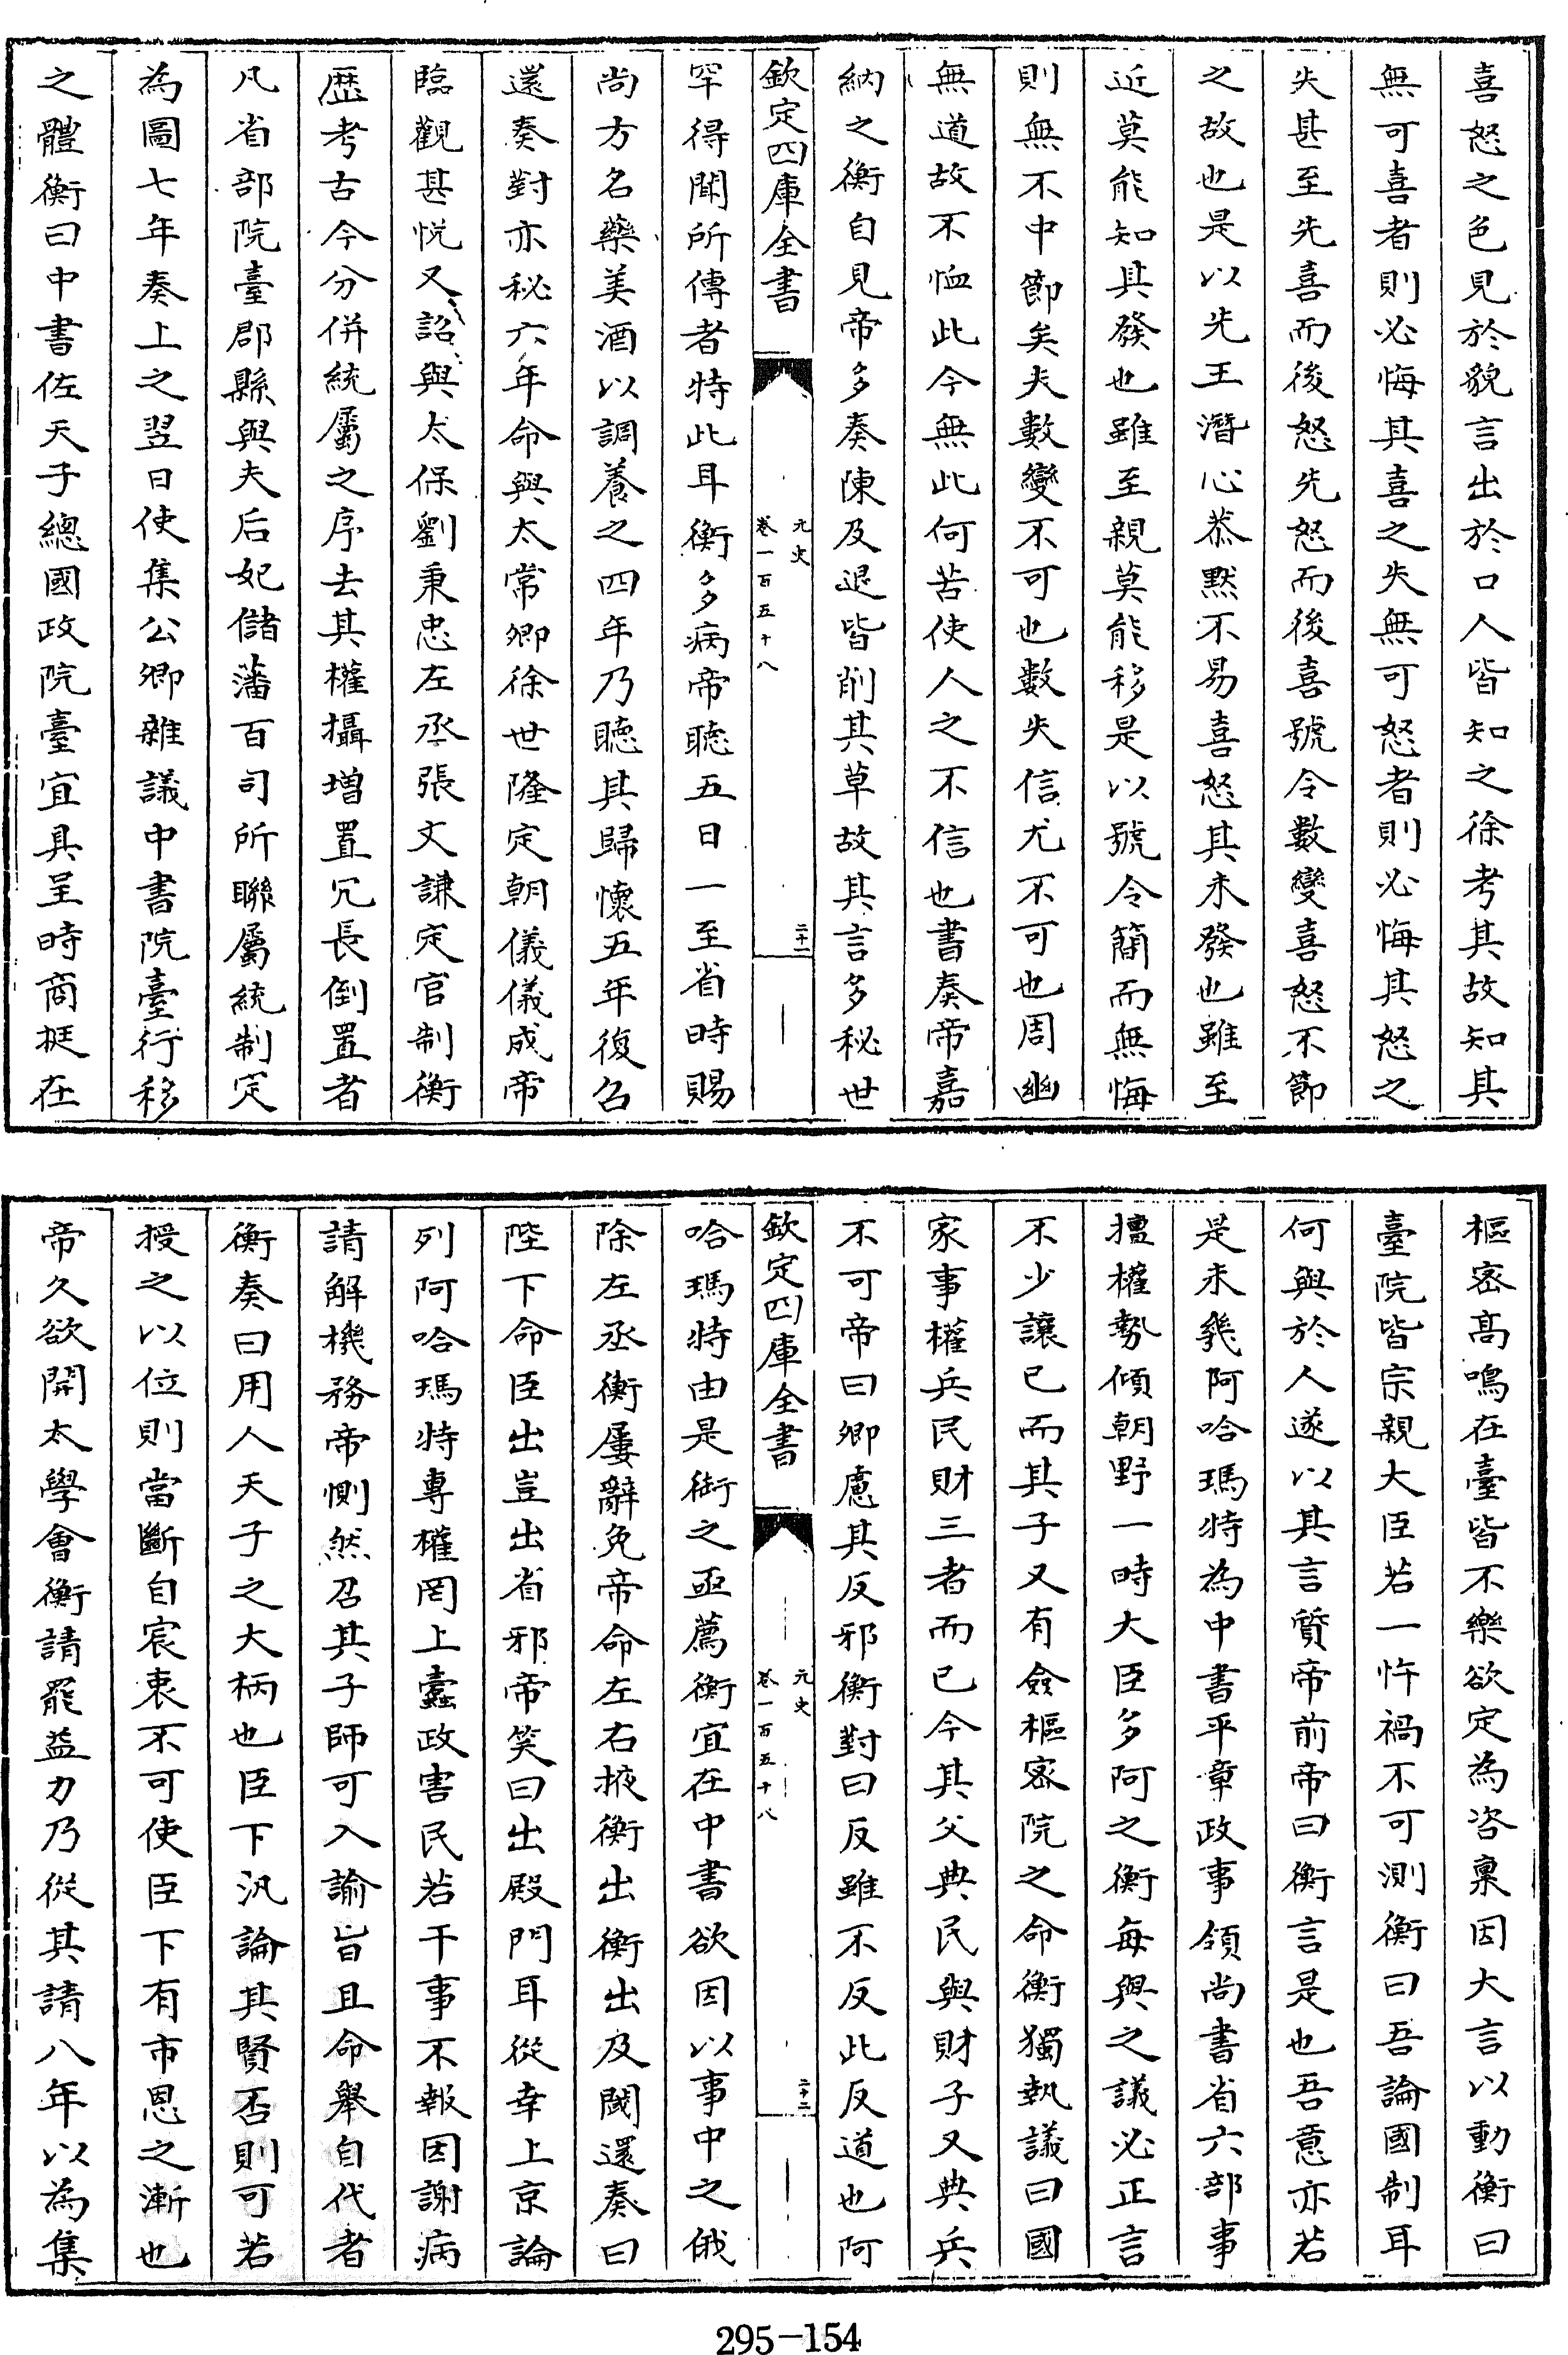 喜怒之色見於貌言出於口人皆知之徐考其故知其
無可喜者則必悔其喜之失無可怒者則必悔其怒之
失甚至先喜而後怒先怒而後喜號令數變喜怒不節
之故也是以先王潛心恭黙不易喜怒其未發也雖至
近莫能知其發也雖至親莫能移是以號令簡而無悔
則無不中節矣夫數變不可也數失信尤不可也周幽
無道故不恤此今無此何苦使人之不信也書奏帝嘉
納之衡自見帝多奏陳及退皆削其草故其言多秘世
欽定四庫全書
元史
卷一百五十八
二十一
罕得聞所傳者特此耳衡多病帝聴五日一至省時賜
尚方名藥美酒以調養之四年乃聽其歸懷五年復召
還奏對亦秘六年命與太常卿徐世隆定朝儀儀成帝
臨觀甚悅又詔與太保劉秉忠左丞張文謙定官制衡
歴考古今分併統屬之序去其權攝增置冗長倒置者
凡省部院臺郡縣與夫后妃儲藩百司所聯屬統制定
為圖七年奏上之翌日使集公卿雜議中書院臺行移
之體衡曰中書佐天子總國政院臺宜具呈時商挺在
樞密髙鳴在臺皆不樂欲定為咨稟因大言以動衡曰
臺院皆宗親大臣若一忤禍不可測衡曰吾論國制耳
何與於人遂以其言質帝前帝曰衡言是也吾意亦若
是未幾阿哈瑪特為中書平章政事領尚書省六部事
擅權勢傾朝野一時大臣多阿之衡每與之議必正言
不少讓已而其子又有僉樞密院之命衡獨執議曰國
家事權兵民財三者而已今其父典民與財子又典兵
不可帝曰卿慮其反邪衡對曰反雖不反此反道也阿
欽定四庫全書
元史
卷一百五十八
二十二
哈瑪特由是銜之亟薦衡宜在中書欲因以事中之俄
除左丞衡屢辭免帝命左右掖衡出衡出及閾還奏曰
陛下命臣出豈出省邪帝笑曰出殿門耳從幸上京論
列阿哈瑪特專權罔上蠹政害民若干事不報因謝病
請解機務帝惻然召其子師可入諭旨且命舉自代者
衡奏曰用人天子之大柄也臣下汎論其賢否則可若
授之以位則當斷自宸衷不可使臣下有市恩之漸也
帝久欲開太學會衡請罷益力乃從其請八年以為集
295-154